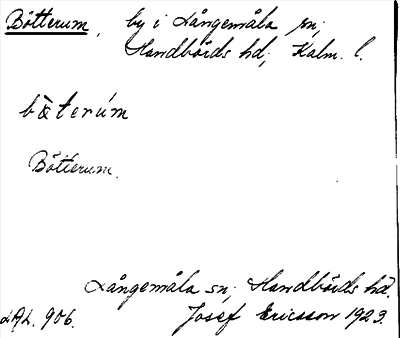 Bötterum, by i Långemåla sn;
Handbörds hd; Kalm. l.
bö̀terúm
Bötterum.
Långemåla sn; Handbörds hd.
LAL. 906. Josef Ericsson 1923.